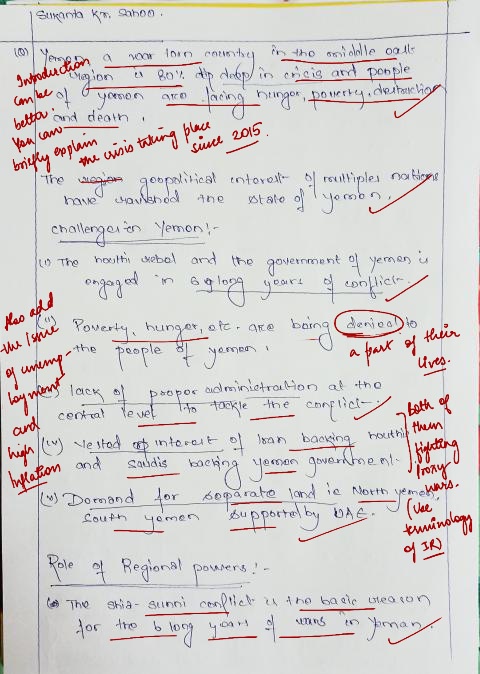 Sukanta Kr. Sahoo.
(Q) Yemen a war torn country in the middle east
region is 80% dip deep in crisis and people
of yemen are facing hunger, poverty, destruction
and death.
Introduction
can be
better
You can
briefly explain
the crisis taking place
since 2015.
The region geopolitical interest of multiples nations
have ravished the state of yemen.
challenges in Yemen!-
(i) The houthi rebal and the government of yemen is
engaged in 6 long years of conflict.
(ii) Poverty, hunger, etc. are being denied to
the people of yemen.
a part of their
lives.
Also add
the issue
of unemp-
loyment
and
high
Inflation
lack of proper administration at the
central level to tackle the conflict.
(iv) Vested interest of Iran backing houthi
and saudis backing yemen government.
Both of
them
fighting
proxy
wars.
(Use
terminology
of IR)
(v) Demand for separate land ie North yemen,
South yemen supported by UAE.
Role of Regional powers!-
The shia-sunni conflict is the basic reason
for the 6 long years of wars in Yeman.